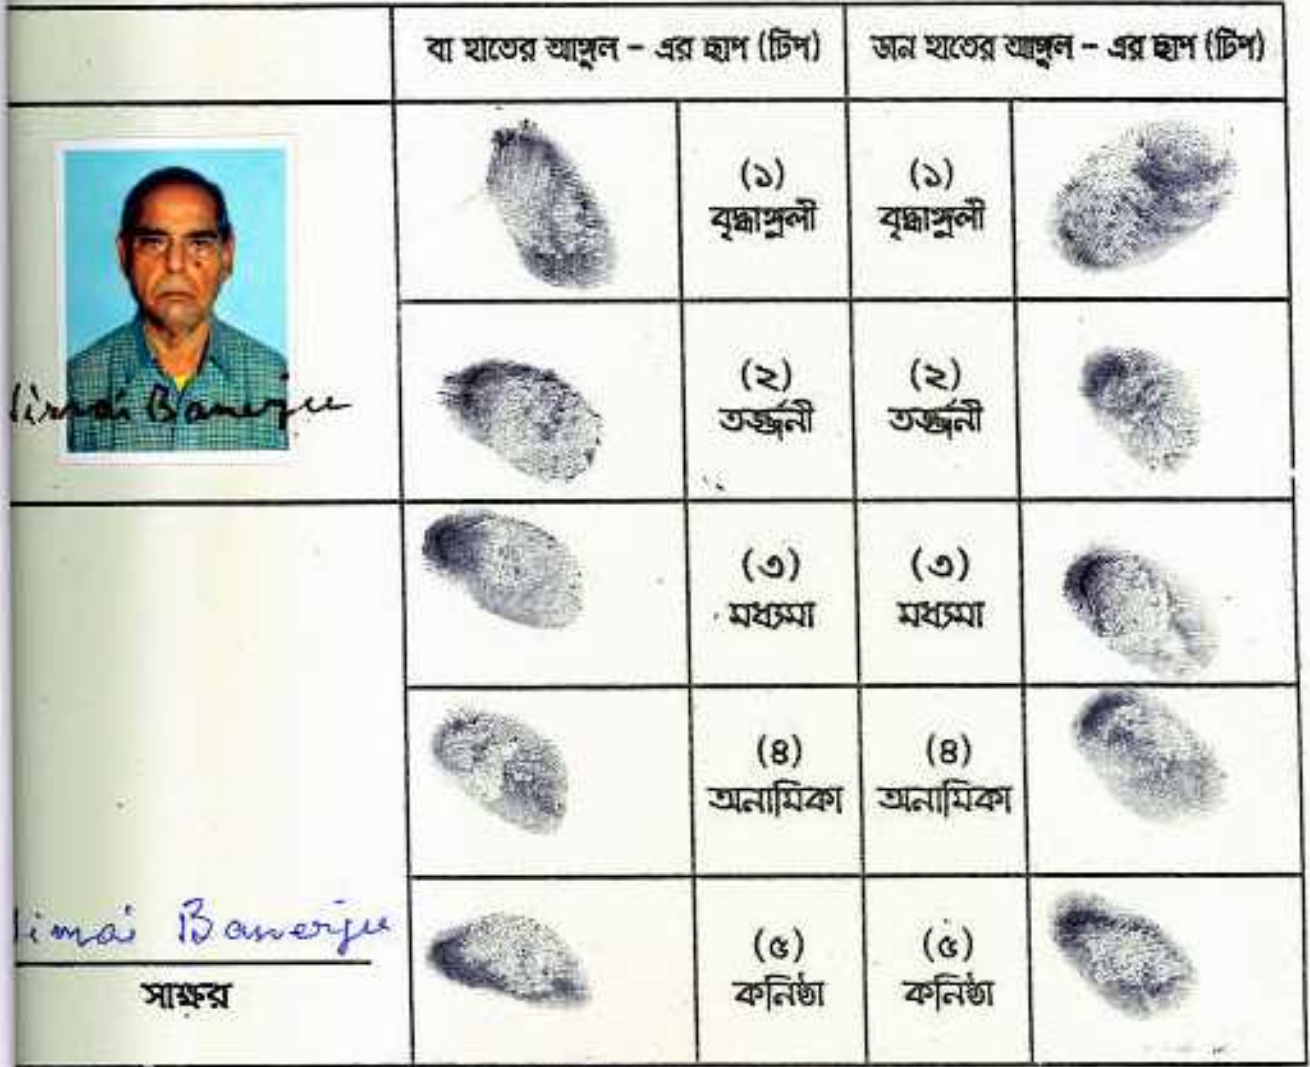 বা হাতের আঙ্গুল – এর ছাপ (টিপ)
ডান হাতের আঙ্গুল – এর ছাপ (টিপ)
(১)
বৃদ্ধাঙ্গুলী
(১)
বৃদ্ধাঙ্গুলী
Banerjee
(২)
তর্জ্জনী
(২)
তর্জ্জনী
(৩)
মধ্যমা
(৩)
মধ্যমা
(৪)
অনামিকা
(৪)
অনামিকা
imai Banerjee
সাক্ষর
(৫)
কনিষ্ঠা
(৫)
কনিষ্ঠা